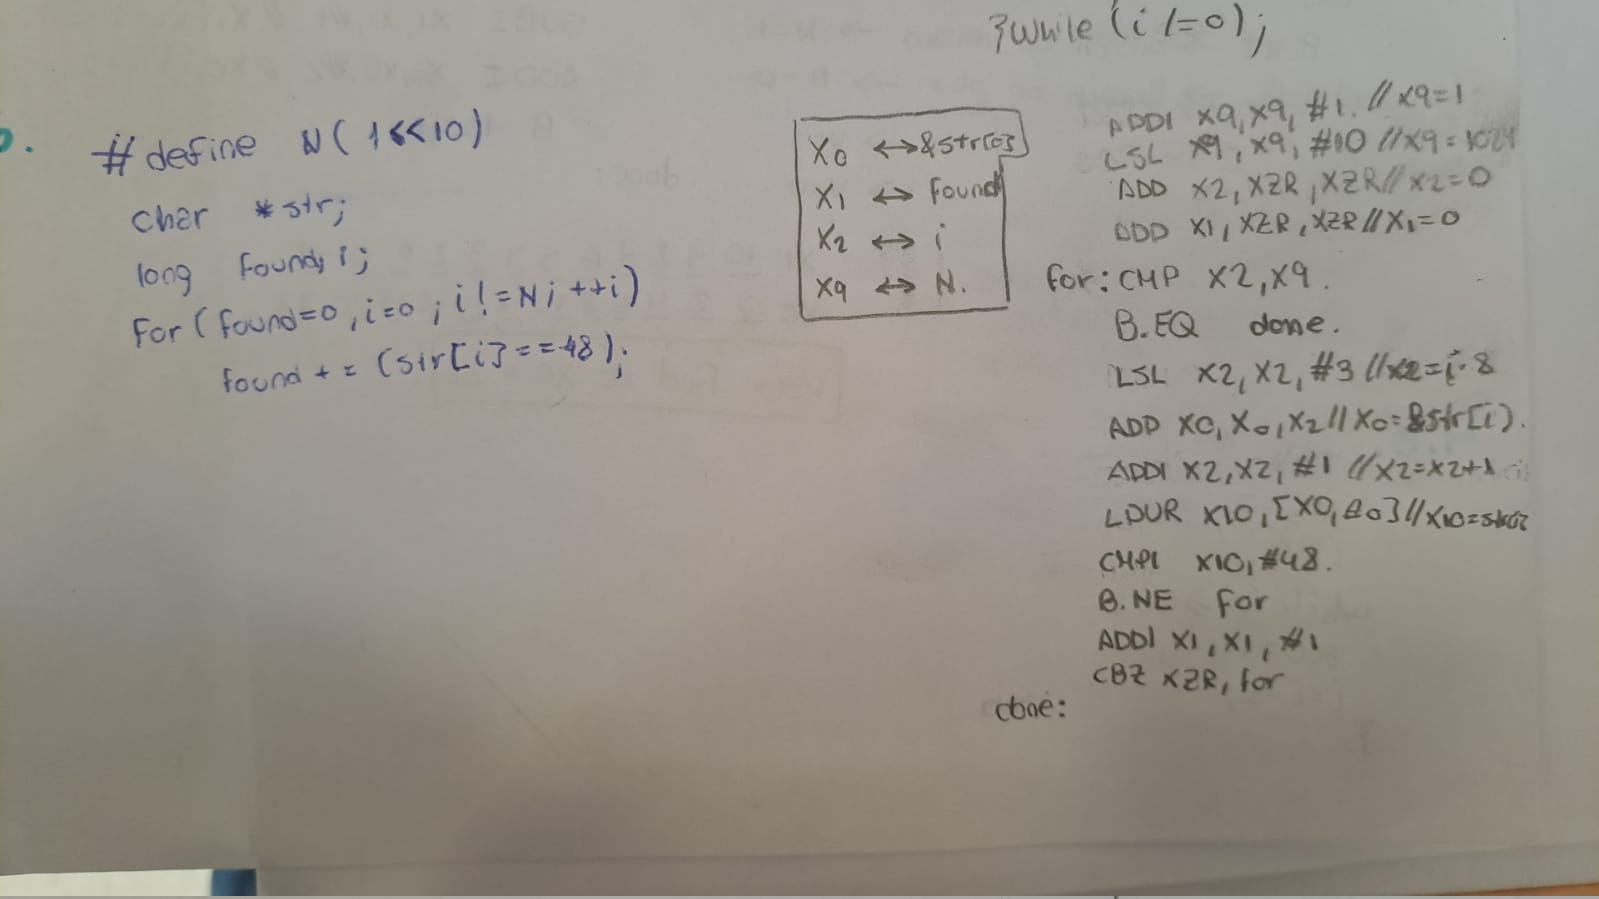 }while (i !=0);
# define N (1<<10)
char *str;
long found, i;
for (found=0, i=0; i!=N; ++i)
found += (str[i]==48);
X0 ↔ &str[0]
X1 ↔ Found
X2 ↔ i
X9 ↔ N.
ADDI X9, X9, #1. // X9=1
LSL X9, X9, #10 // X9=1024
ADD X2, XZR, XZR // X2=0
ADD X1, XZR, XZR // X1=0
for: CMP X2, X9.
B.EQ done.
LSL X2, X2, #3 // X2=i·8
ADD X0, X0, X2 // X0=&str[i].
ADDI X2, X2, #1 // X2=X2+1
LDUR X10, [X0, #0] // X10=
CMPI X10, #48.
B.NE for
ADDI X1, X1, #1
CBZ XZR, for
done: